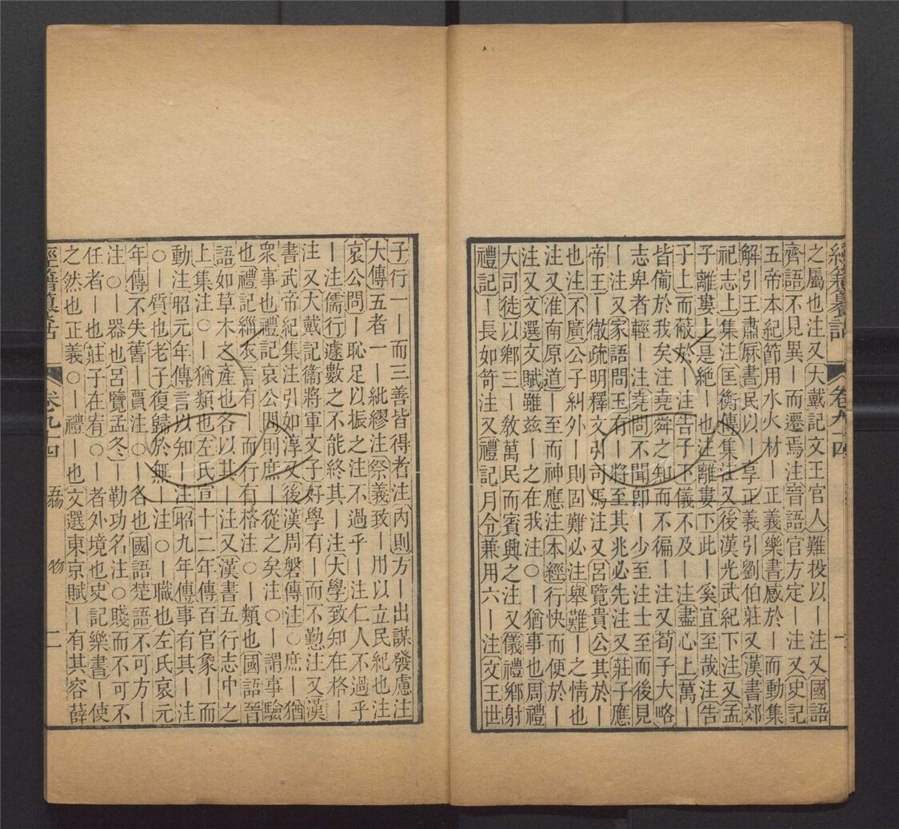 經籍籑詁 卷九十四 一
之屬也注又大戴記文王官人難投以丨注又國語
齊語不見異丨而遷焉注晉語官方定丨注又史記
五帝本紀節用水火材丨正義樂書感於丨而動集
解引王肅厤書民以丨享正義引劉伯莊又漢書郊
祀志上集注匡衡傳集注又後漢光武紀下注又孟
子離婁上上是絶丨也注離婁下此丨奚宜至哉注告
于上而蔽於丨注告子下儀不及丨注盡心上萬
皆僃於我矣注堯舜之知而不徧丨注又荀子大略
志卑者輕丨注堯問丨不聞卽丨少至注士至而後見
丨注又家語問王有丨將至其兆必先注又莊子應
帝王丨徹疏明釋文引司馬注又呂覽貴公其於丨
也注不廣公子糾外丨則固難必注舉難丨之情也
注又淮南原道丨至而神應注本經行快而便於丨
注又文選文賦雖茲丨之在我注〇丨猶事也周禮
大司徒以鄉三丨敎萬民而賓興之注又儀禮鄉射
禮記丨長如笴注又禮記月令兼用六丨注文王世
子行一丨而三善皆得者注內則方丨出謀發慮注
大傳五者一丨紕繆注祭義致丨用以立民紀也注
哀公問丨恥足以振之注不過乎丨注仁人不過乎
丨注儒行遽數之不能終其丨注大學致知在格丨
注又大戴記衞將軍文子好學有丨而不懃注又漢
書武帝紀集注引如淳又後漢周磐傳注〇庶丨猶
衆事也禮記哀公問則庶丨從之矣注〇丨謂事驗
也禮記緇衣言有丨而行有格注〇丨類也國語晉
語如草木之產也各以其丨注又漢書五行志中之
上集注〇丨猶類也左氏宣十二年傳百官象丨而
動注昭元年傳言以知丨注昭九年傳事有其丨注
〇丨質也老子復歸於無丨注〇丨職也左氏哀元
年傳不失舊丨賈注〇丨名也國語楚語不可方丨
注〇丨器也呂覽孟冬丨勒功名注〇賤而不可不
任者丨也莊子在宥〇丨者外境也史記樂書丨使
之然也正義〇丨禮丨也文選東京賦丨有其容薛
經籍籑詁 卷九十四 五物 物 二